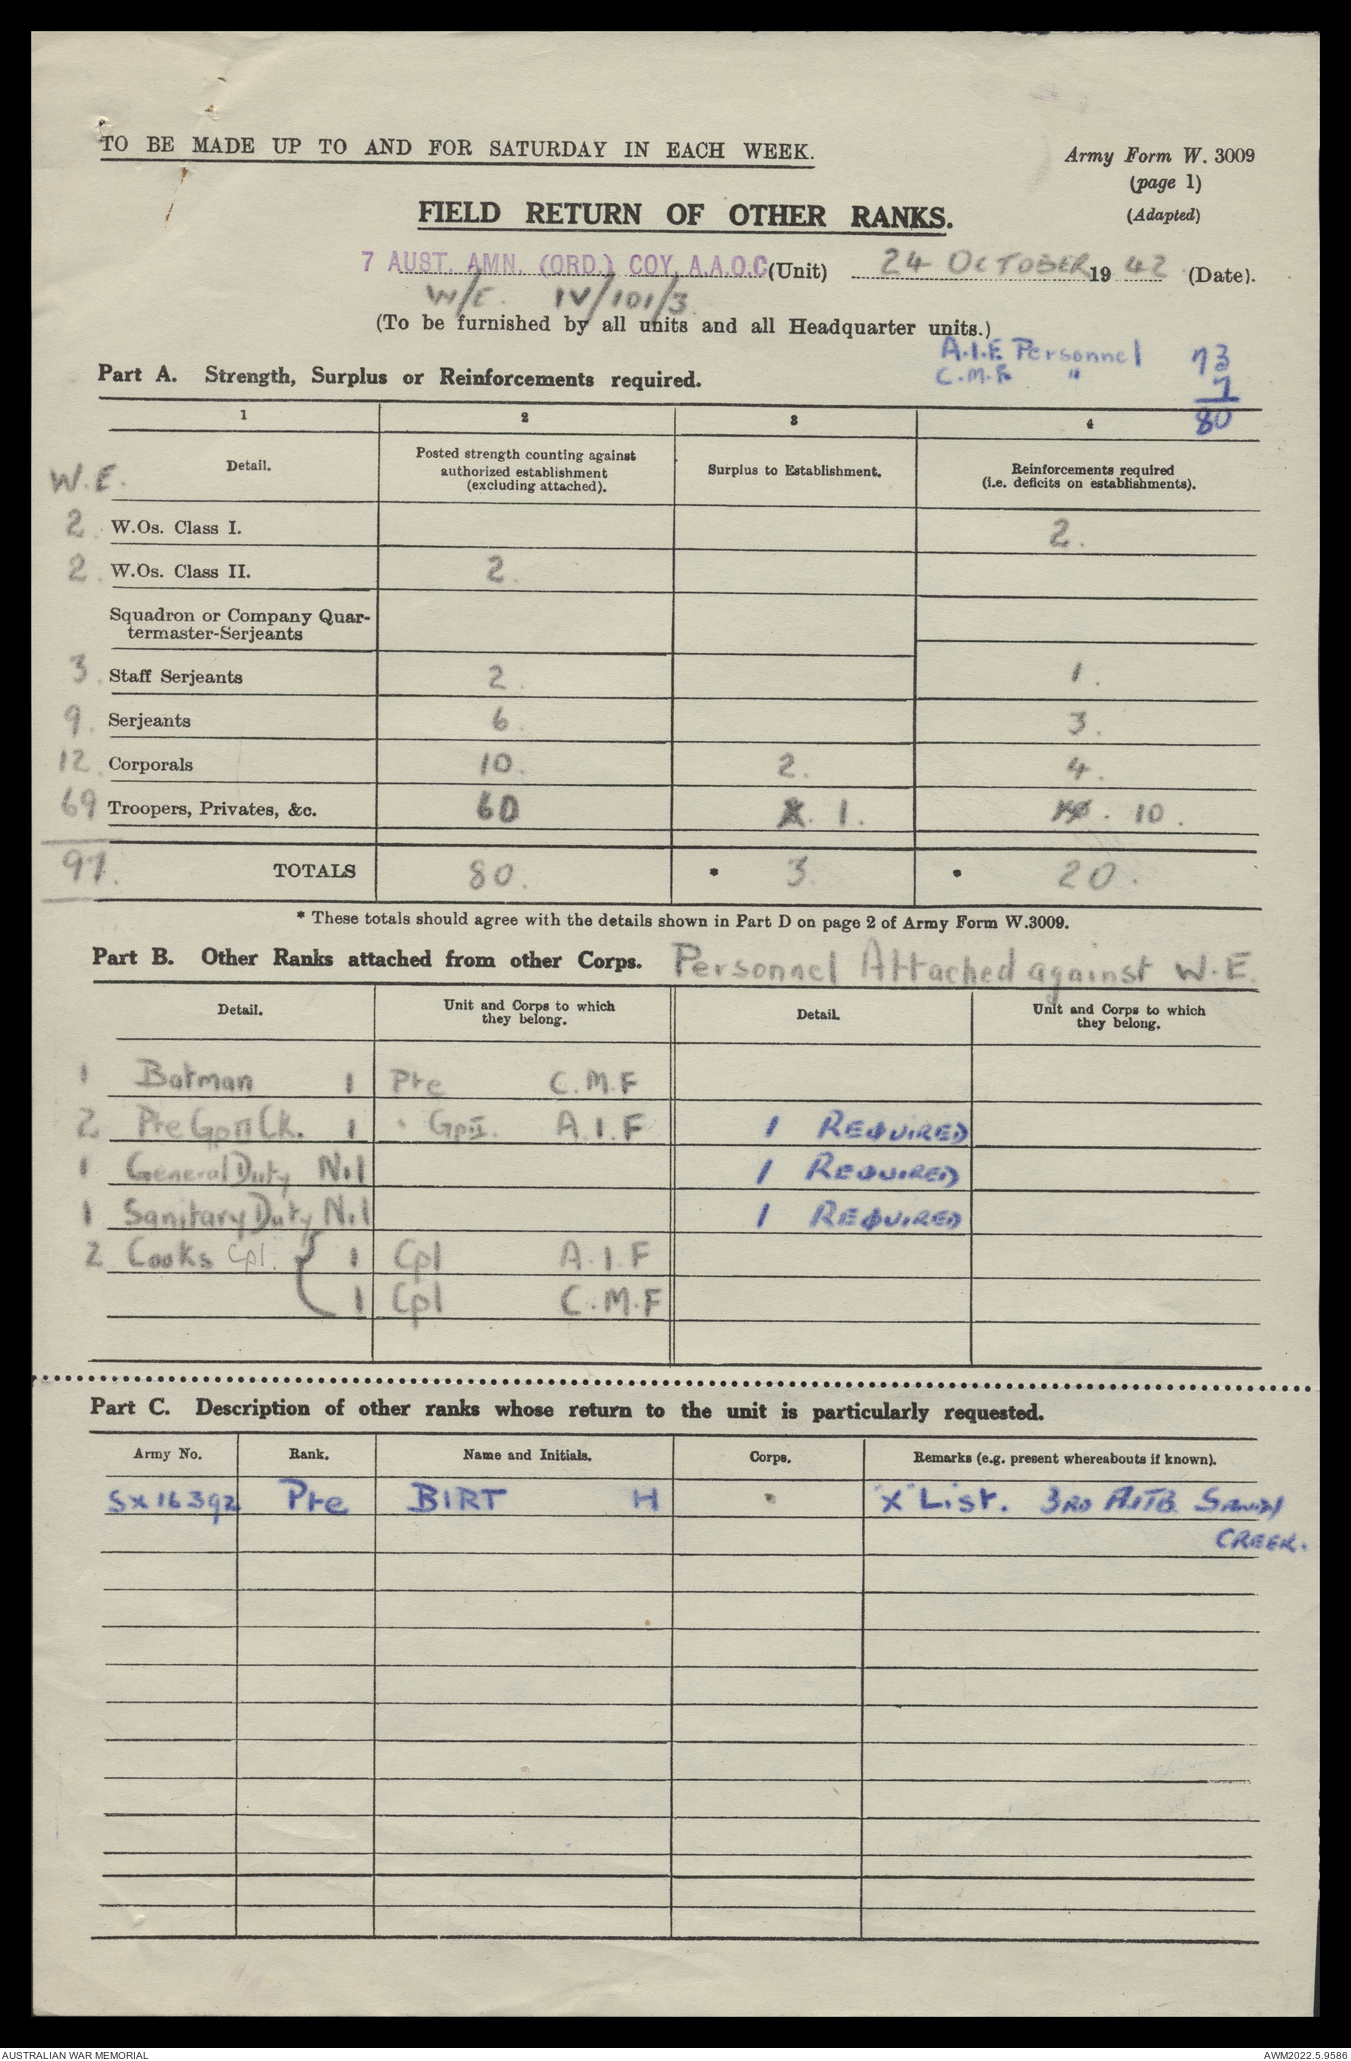 TO BE MADE UP TO AND FOR SATURDAY IN EACH WEEK.
Army Form W. 3009
(page 1)
(Adapted)
FIELD RETURN OF OTHER RANKS.
7 AUST. AMN. (ORD.) COY, A.A.O.C (Unit) 24 OCTOBER 19 42 (Date).
W/E. IV/101/3.
(To be furnished by all units and all Headquarter units.)
A.I.F. Personnel 73
C.M.F. " 7
80
Part A. Strength, Surplus or Reinforcements required.
1 2 3 4
W.E. Detail. Posted strength counting against authorized establishment (excluding attached). Surplus to Establishment. Reinforcements required (i.e. deficits on establishments).
2. W.Os. Class I. 2.
2. W.Os. Class II. 2.
Squadron or Company Quar-
termaster-Serjeants
3. Staff Serjeants 2. 1.
9. Serjeants 6. 3.
12. Corporals 10. 2. 4.
69 Troopers, Privates, &c. 60 1. 10.
97. TOTALS 80. * 3. * 20.
* These totals should agree with the details shown in Part D on page 2 of Army Form W.3009.
Part B. Other Ranks attached from other Corps. Personnel Attached against W.E.
Detail. Unit and Corps to which they belong. Detail. Unit and Corps to which they belong.
1 Batman 1 Pte C.M.F
2 Pte Gp II Ck. 1 " Gp II. A.I.F 1 REQUIRED
1 General Duty Nil 1 REQUIRED
1 Sanitary Duty Nil 1 REQUIRED
2 Cooks Cpl. { 1 Cpl A.I.F
1 Cpl C.M.F
Part C. Description of other ranks whose return to the unit is particularly requested.
Army No. Rank. Name and Initials. Corps. Remarks (e.g. present whereabouts if known).
SX16392 Pte BIRT H "X" List. 3RD SANDY
CREEK.
AUSTRALIAN WAR MEMORIAL
AWM2022.5.9586